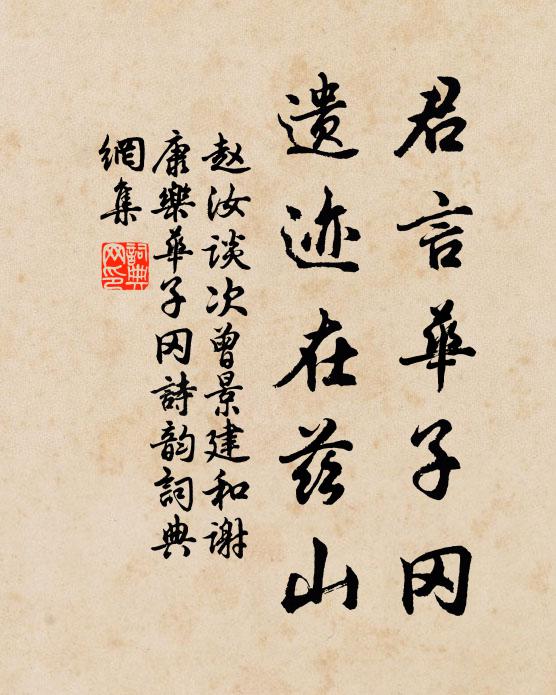 君言華子冈
遗迹在茲山
赵汝谈次曾景建和谢
康樂華子冈詩韵詞典
網集
詞典网印